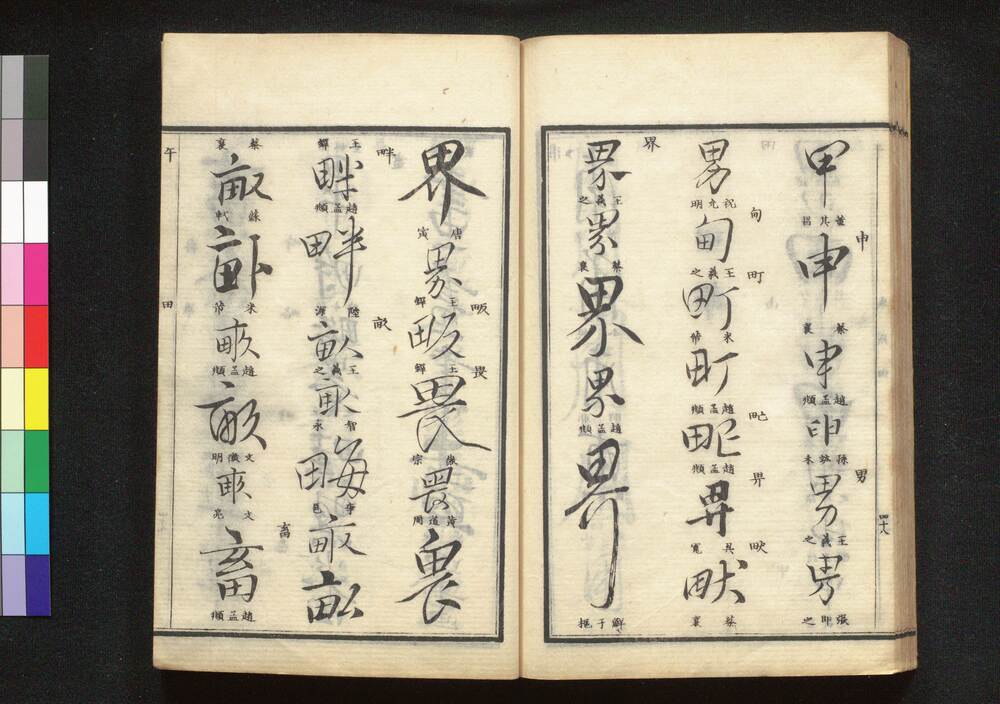 甲
董其昌
申
申
蔡襄
申
趙孟頫
申
孫虔禮
男
男
王羲之
男
張即之
男
祝允明
甸
甸
王羲之
町
町
米芾
町
趙孟頫
甿
甿
趙孟頫
畀
畀
吳寬
畎
畎
蔡襄
界
界
王羲之
界
蔡襄
界
界
趙孟頫
界
鮮于樞
四十八
界
唐寅
界
王鐸
畈
畈
王鐸
畏
畏
徽宗
畏
黃道周
畏
王鐸
畔
畔
趙孟頫
畔
陸游
畝
畝
王羲之
畝
智永
畮
李邕
畝
畝
蔡襄
畝
蘇軾
畝
米芾
畝
趙孟頫
畝
文徵明
畝
文彭
畜
畜
趙孟頫
午
田